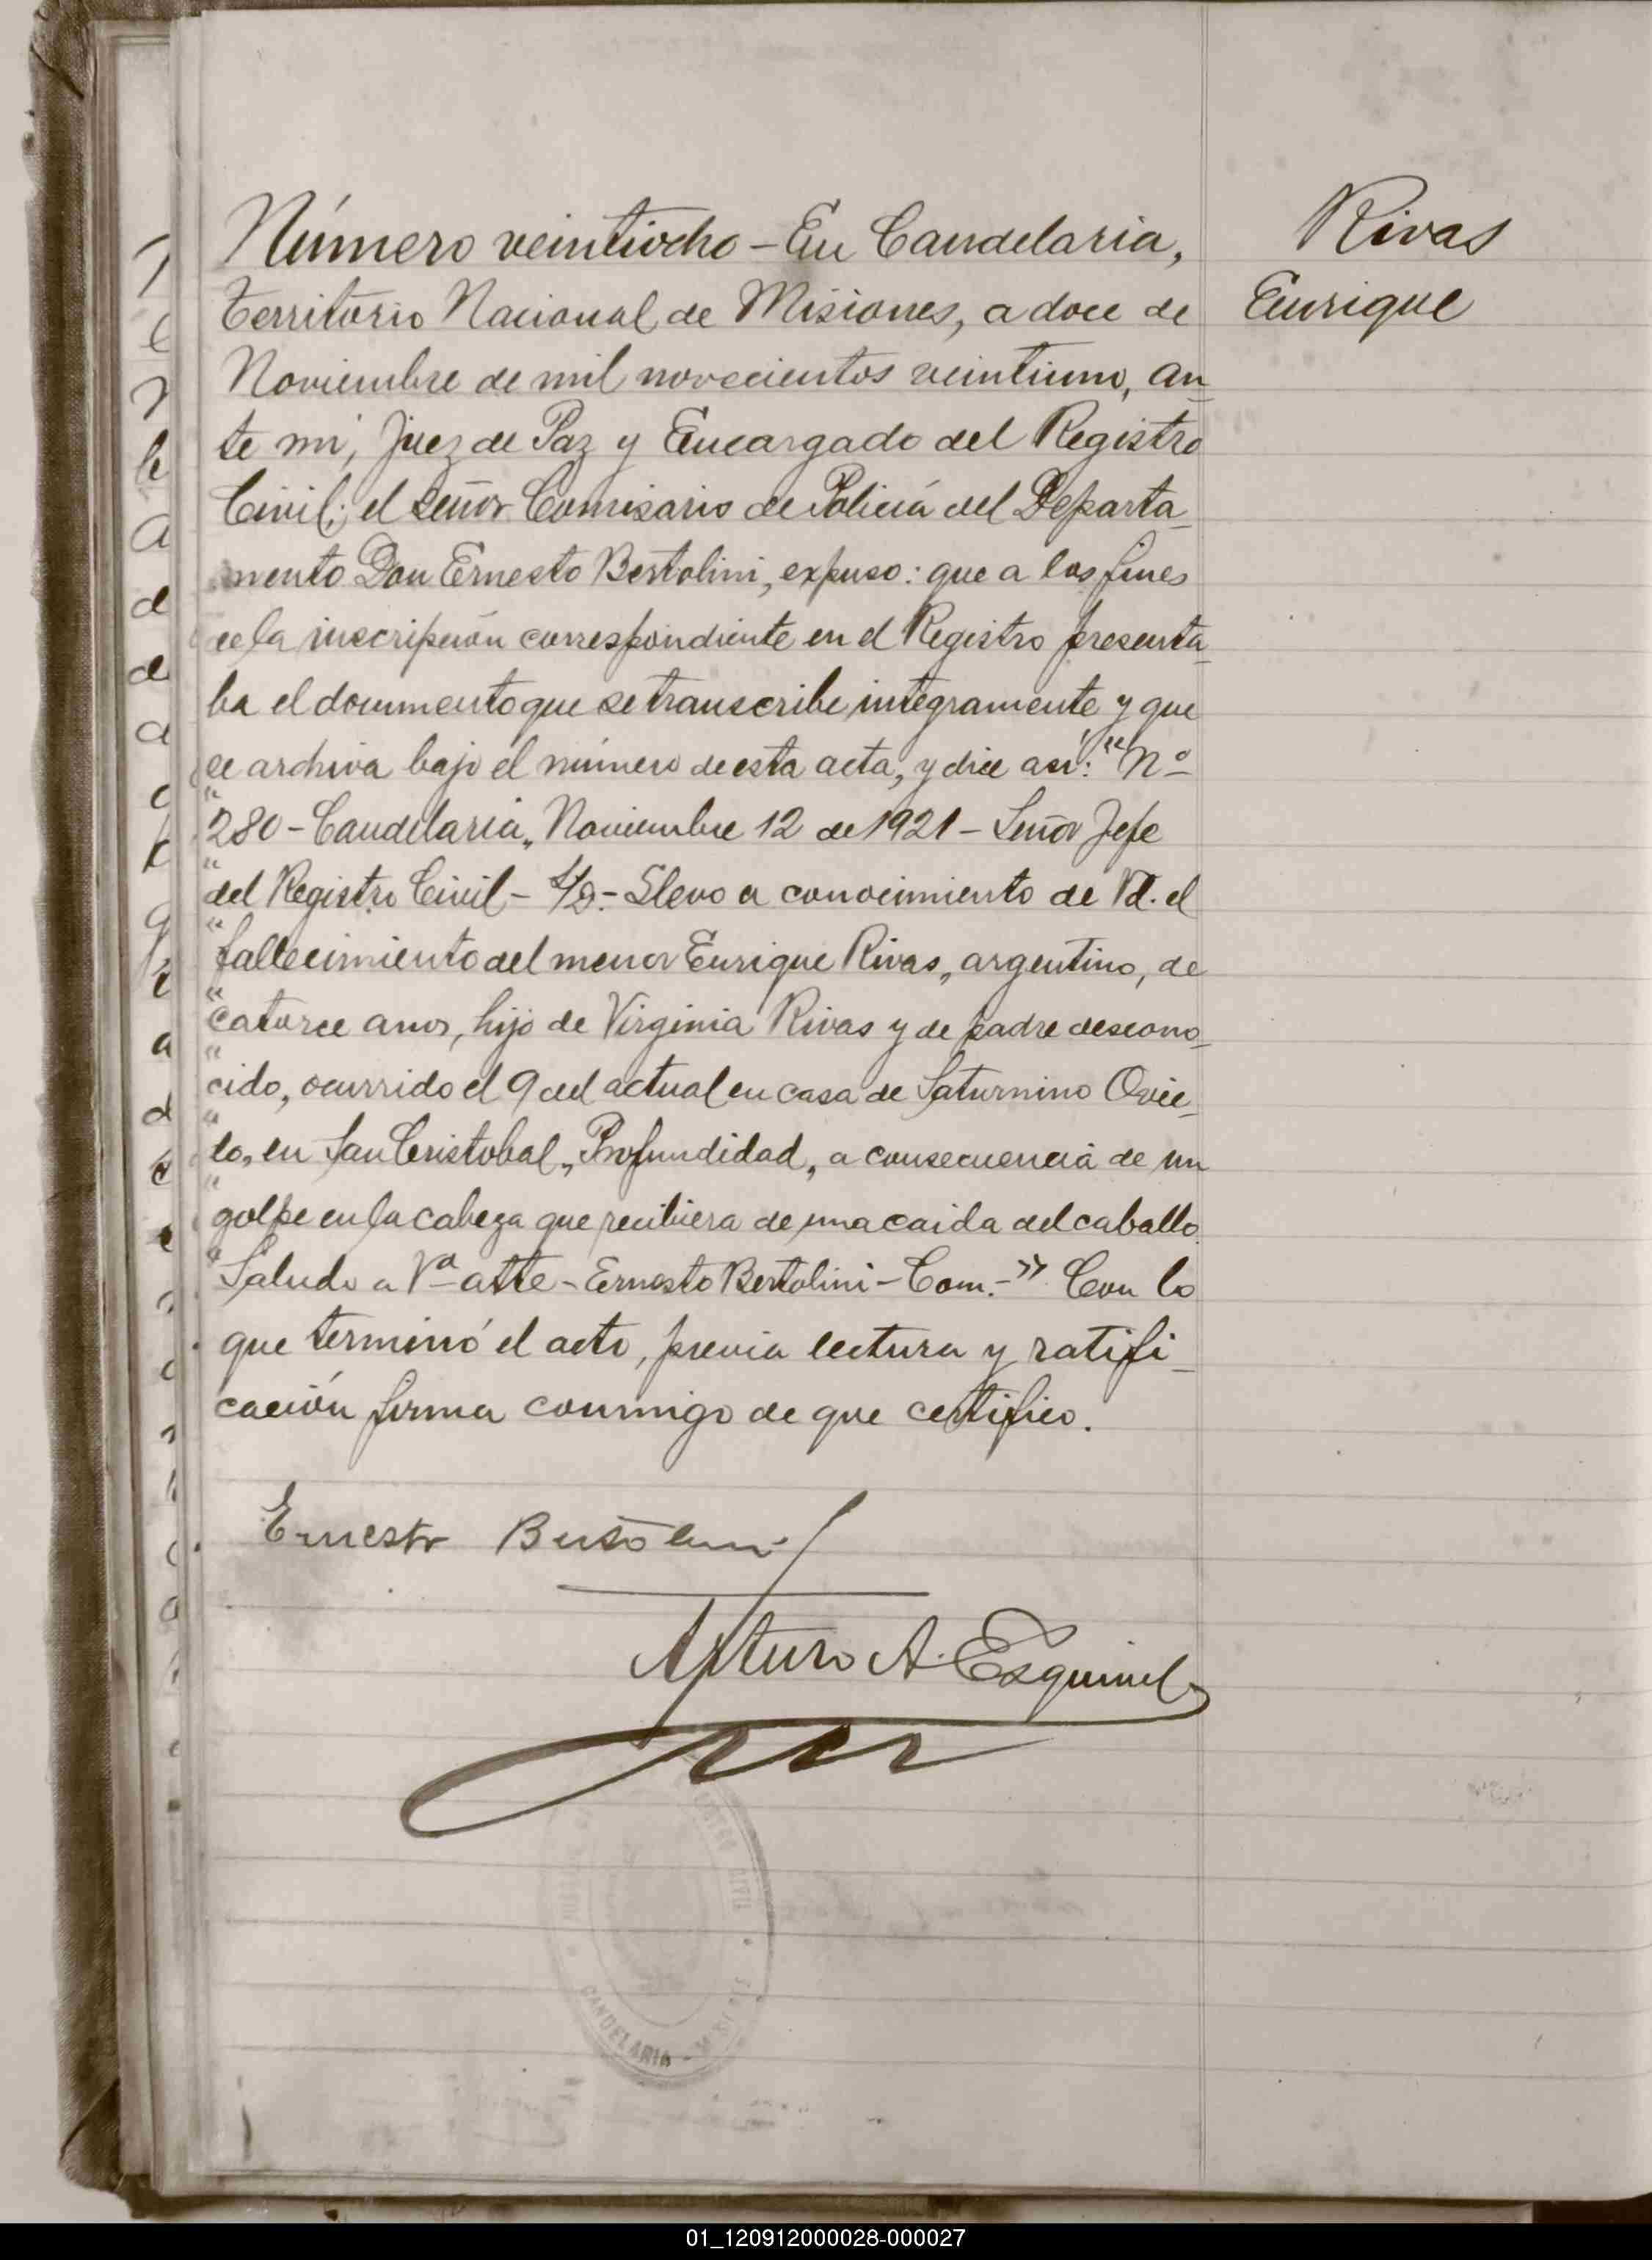 Rivas
Enrique
Número veintiocho – En Candelaria,
Territorio Nacional de Misiones, a doce de
Noviembre de mil novecientos veintiuno, an_
te mi, Juez de Paz y Encargado del Registro
Civil; el señor Comisario de Policía del Departa_
mento Don Ernesto Bertolini, expuso: que a los fines
de la inscripción correspondiente en el Registro presenta_
ba el documento que se transcribe integramente y que
se archiva bajo el número de esta acta, y dice así: "Nº
"280 – Candelaria, Noviembre 12 de 1921 – Señor Jefe
"del Registro Civil – S/D. – Llevo a conocimiento de Vd. el
"fallecimiento del menor Enrique Rivas, argentino, de
"catorce años, hijo de Virginia Rivas y de padre descono_
"cido, ocurrido el 9 del actual en casa de Saturnino Ovie_
"do, en San Cristobal, Profundidad, a consecuencia de un
"golpe en la cabeza que recibiera de una caida del caballo.
"Saludo a Vd atte – Ernesto Bertolini – Com. –" Con lo
que terminó el acto, previa lectura y ratifi_
cación firma conmigo de que certifico.
Ernesto Bertolini
Arturo A. Esquivel
CANDELARIA – MISIONES
01_120912000028-000027